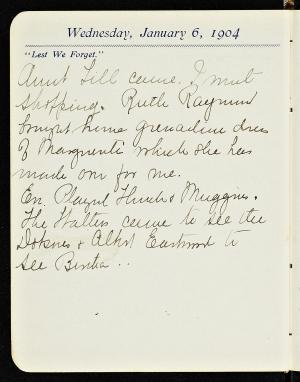 Wednesday, January 6, 1904
"Lest We Forget."
Aunt Lill came. I went
shopping. Ruth Raymond
brought home grenadine dress
of Marguerite which she has
made over for me.
Ev. Played Flinch & Muggins.
The Walters came to see the
& Albert Eastwood to
see